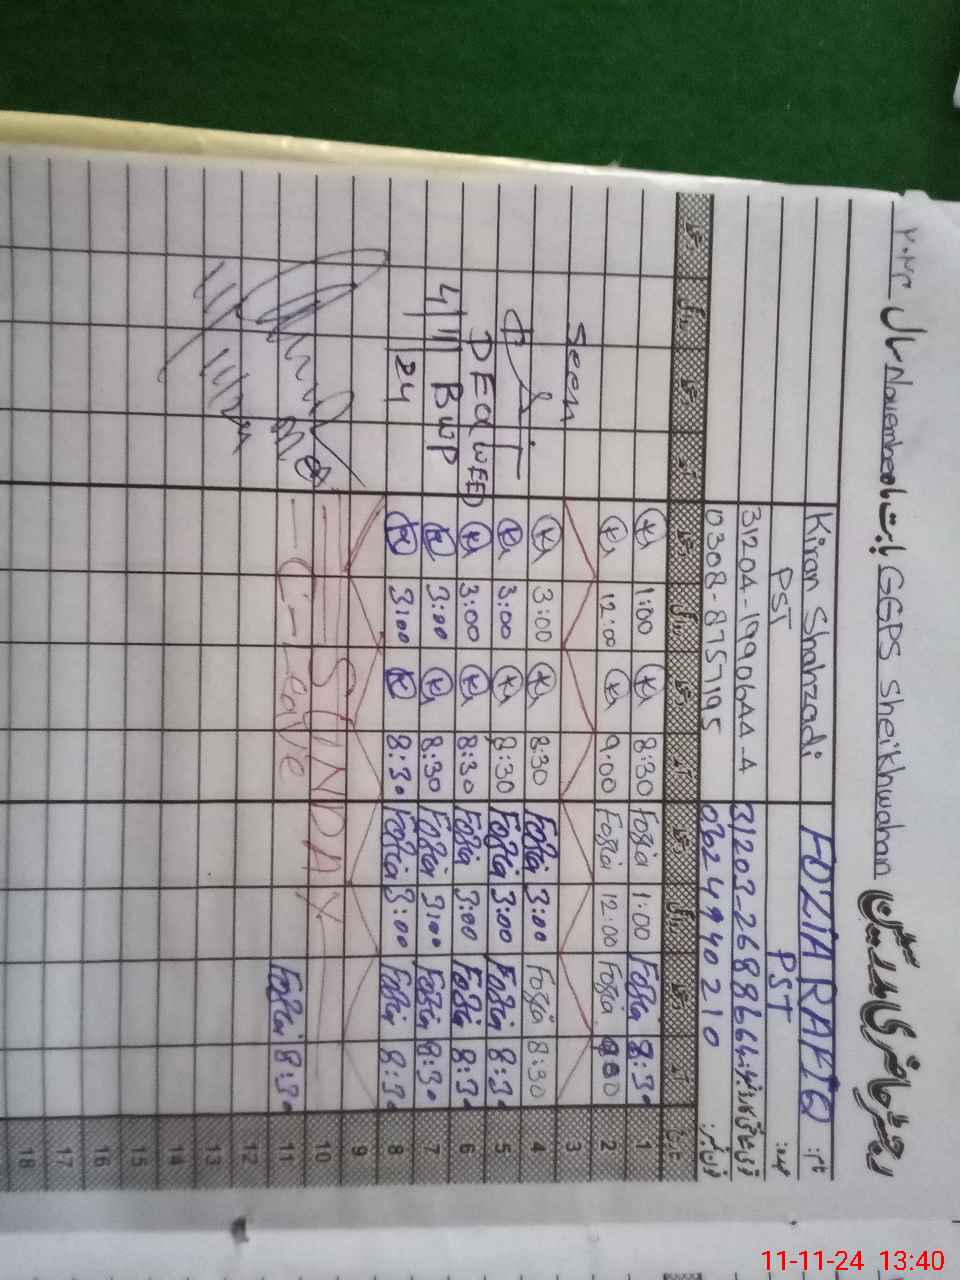 رجسٹر حاضری مدرسین GGPS Sheikhwahan بابت ماہ November سال ۲۰۲۴
نام: FOZIA RAFIQ Kiran Shahzadi
عہدہ: PST PST
31204-1990644-4
فون نمبر: 0624940210 0308-8757195
تاریخ
1 8:30 Fozia 1:00 Fozia 8:30 1:00
2 Fozia 12:00 Fozia 9:00 12:00
3 Seen
4 8:30 Fozia 3:00 Fozia 8:30 3:00
5 8:30 Fozia 3:00 Fozia 8:30 3:00
6 8:30 Fozia 3:00 Fozia 8:30 3:00 DEO(WEE)
7 8:30 Fozia 3:00 Fozia 8:30 3:00 BWP
8 8:30 Fozia 3:00 Fozia 8:30 3:00 4/11/24
9
10 SUNDAY
11 8:30 Fozia C-Leave
12
13
14
15
16
17
18
11-11-24 13:40